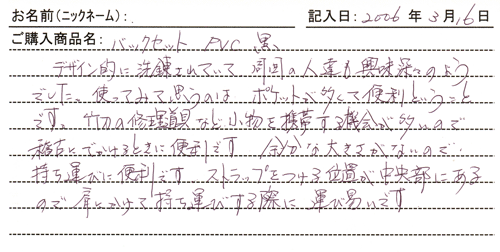 お名前(ニックネーム):. 記入日:2006年3月16日
ご購入商品名: バックセット PVC 黒
デザイン的に洗錬されていて 周囲の人達も興味深々のよう
でした。使ってみて思うのは ポケットが多くて便利ということ
です。竹刀の修理道具など小物を携帯する機会が多いので
稽古にでかけるときに便利です な大きさがないので、
持ち運びに便利です ストラップをつける位置が中央部にある
ので肩にかけて持ち運びする際に 運び易いです